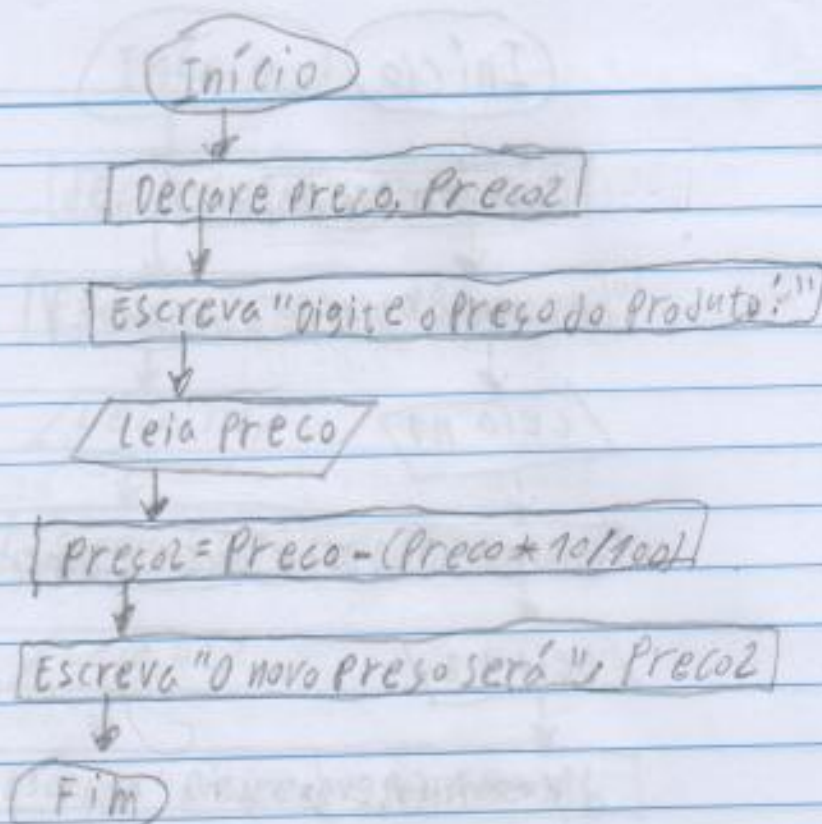 Início
Declare preco, Preco2
Escreva "Digite o Preço do Produto:"
Leia preco
Preço2 = Preco - (Preco * 10/100)
Escreva "O novo Preço será", Preco2
Fim